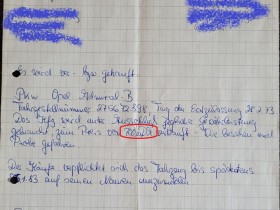 Es wird der Kfz verkauft.
Pkw Opel Admiral-B
Fahrgestellnummer 275672398, Tag der Erstzulassung 28.2.73
Das Kfz wird unter Ausschluss jeglicher Gewährleistung
gebraucht, zum Preis von verkauft. Wie besehen und
Probe gefahren.
Der Käufer verpflichtet sich das Fahrzeug bis spätestens
.83 auf seinen Namen umzumelden